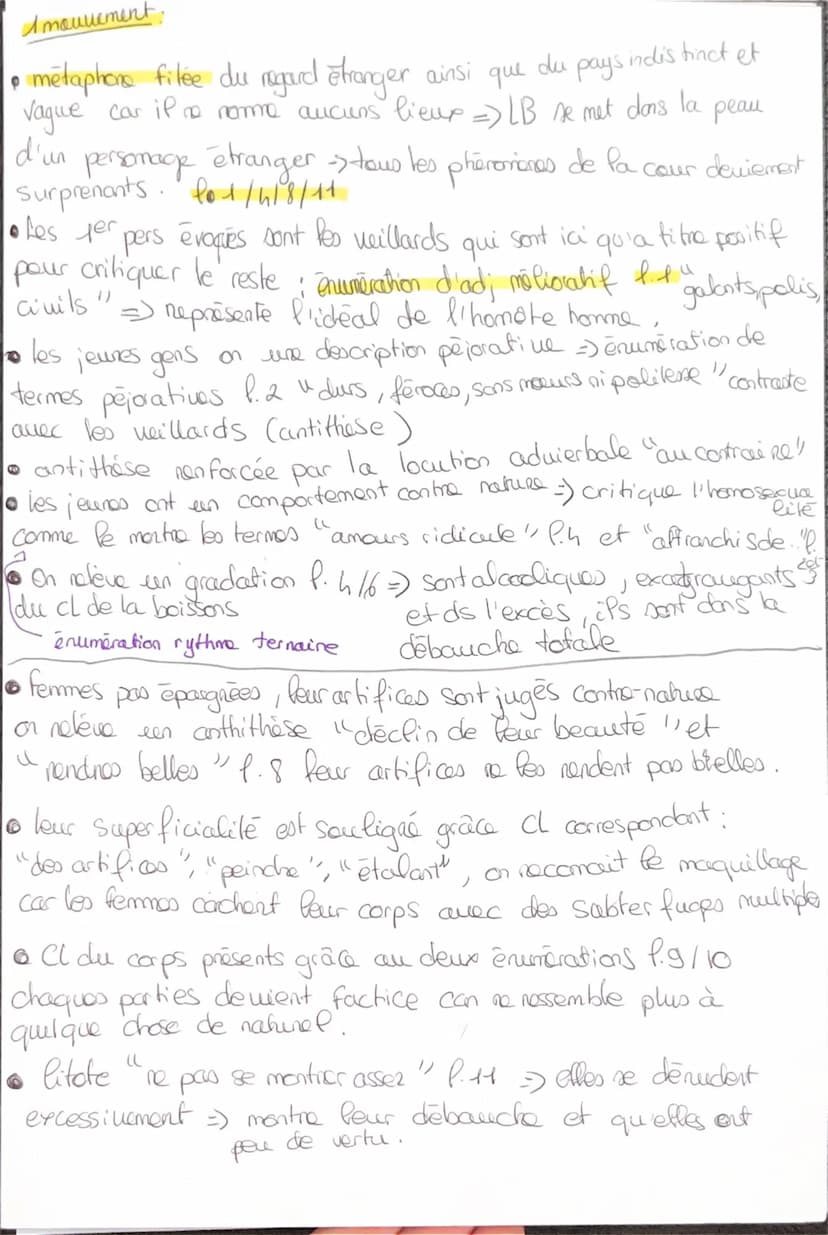 1 mouvement.
• métaphore filée du regard étranger ainsi que du pays indistinct et
vague car il ne nome aucuns lieux => LB se met dans la peau
d'un personage étranger -> tous les phénomènes de la cour deviement
surprenants. l. 1/4/8/11
• Les 1er pers évoqués sont les vieillards qui sont ici qu'a titre positif
pour critiquer le reste : énumération d'adj mélioratif l.1 "galants, polis,
civils" => représente l'idéal de l'honnête homme.
• les jeunes gens on une description péjorative => énumération de
termes péjoratives l.2 "durs, féroces, sans mœurs ni politesse" contraste
avec les vieillards (antithèse)
• antithèse renforcée par la locution adverbale "au contraire"
• les jeunes ont un comportement contre nature => critique l'homosexua
lité
comme le montre les termes "amours ridicule" l.4 et "affranchis de" l.
• On relève un gradation l. 4/6 => sont alcooliques, extravagants
du cl de la boissons et ds l'excès, ils sont dans la
énumération rythme ternaire débauche totale
• femmes pas épargnées, leur artifices sont jugés contre-nature
on relève un anthithèse "déclin de leur beauté" et
"rendres belles" l.8 leur artifices ne les rendent pas belles.
• leur superficialité est souligné grâce CL correspondant :
"des artifices", "peindre", "étalant", on reconait le maquillage
car les femmes cachent leur corps avec des subterfuges multiple
• Cl du corps présents grâce au deux énumérations l.9/10
chaques parties devient factice car ne ressemble plus à
quelque chose de naturel.
• litote "ne pas se montrer assez" l.11 => elles se dénudent
excessivement => montre leur débauche et qu'elles ont
peu de vertu.